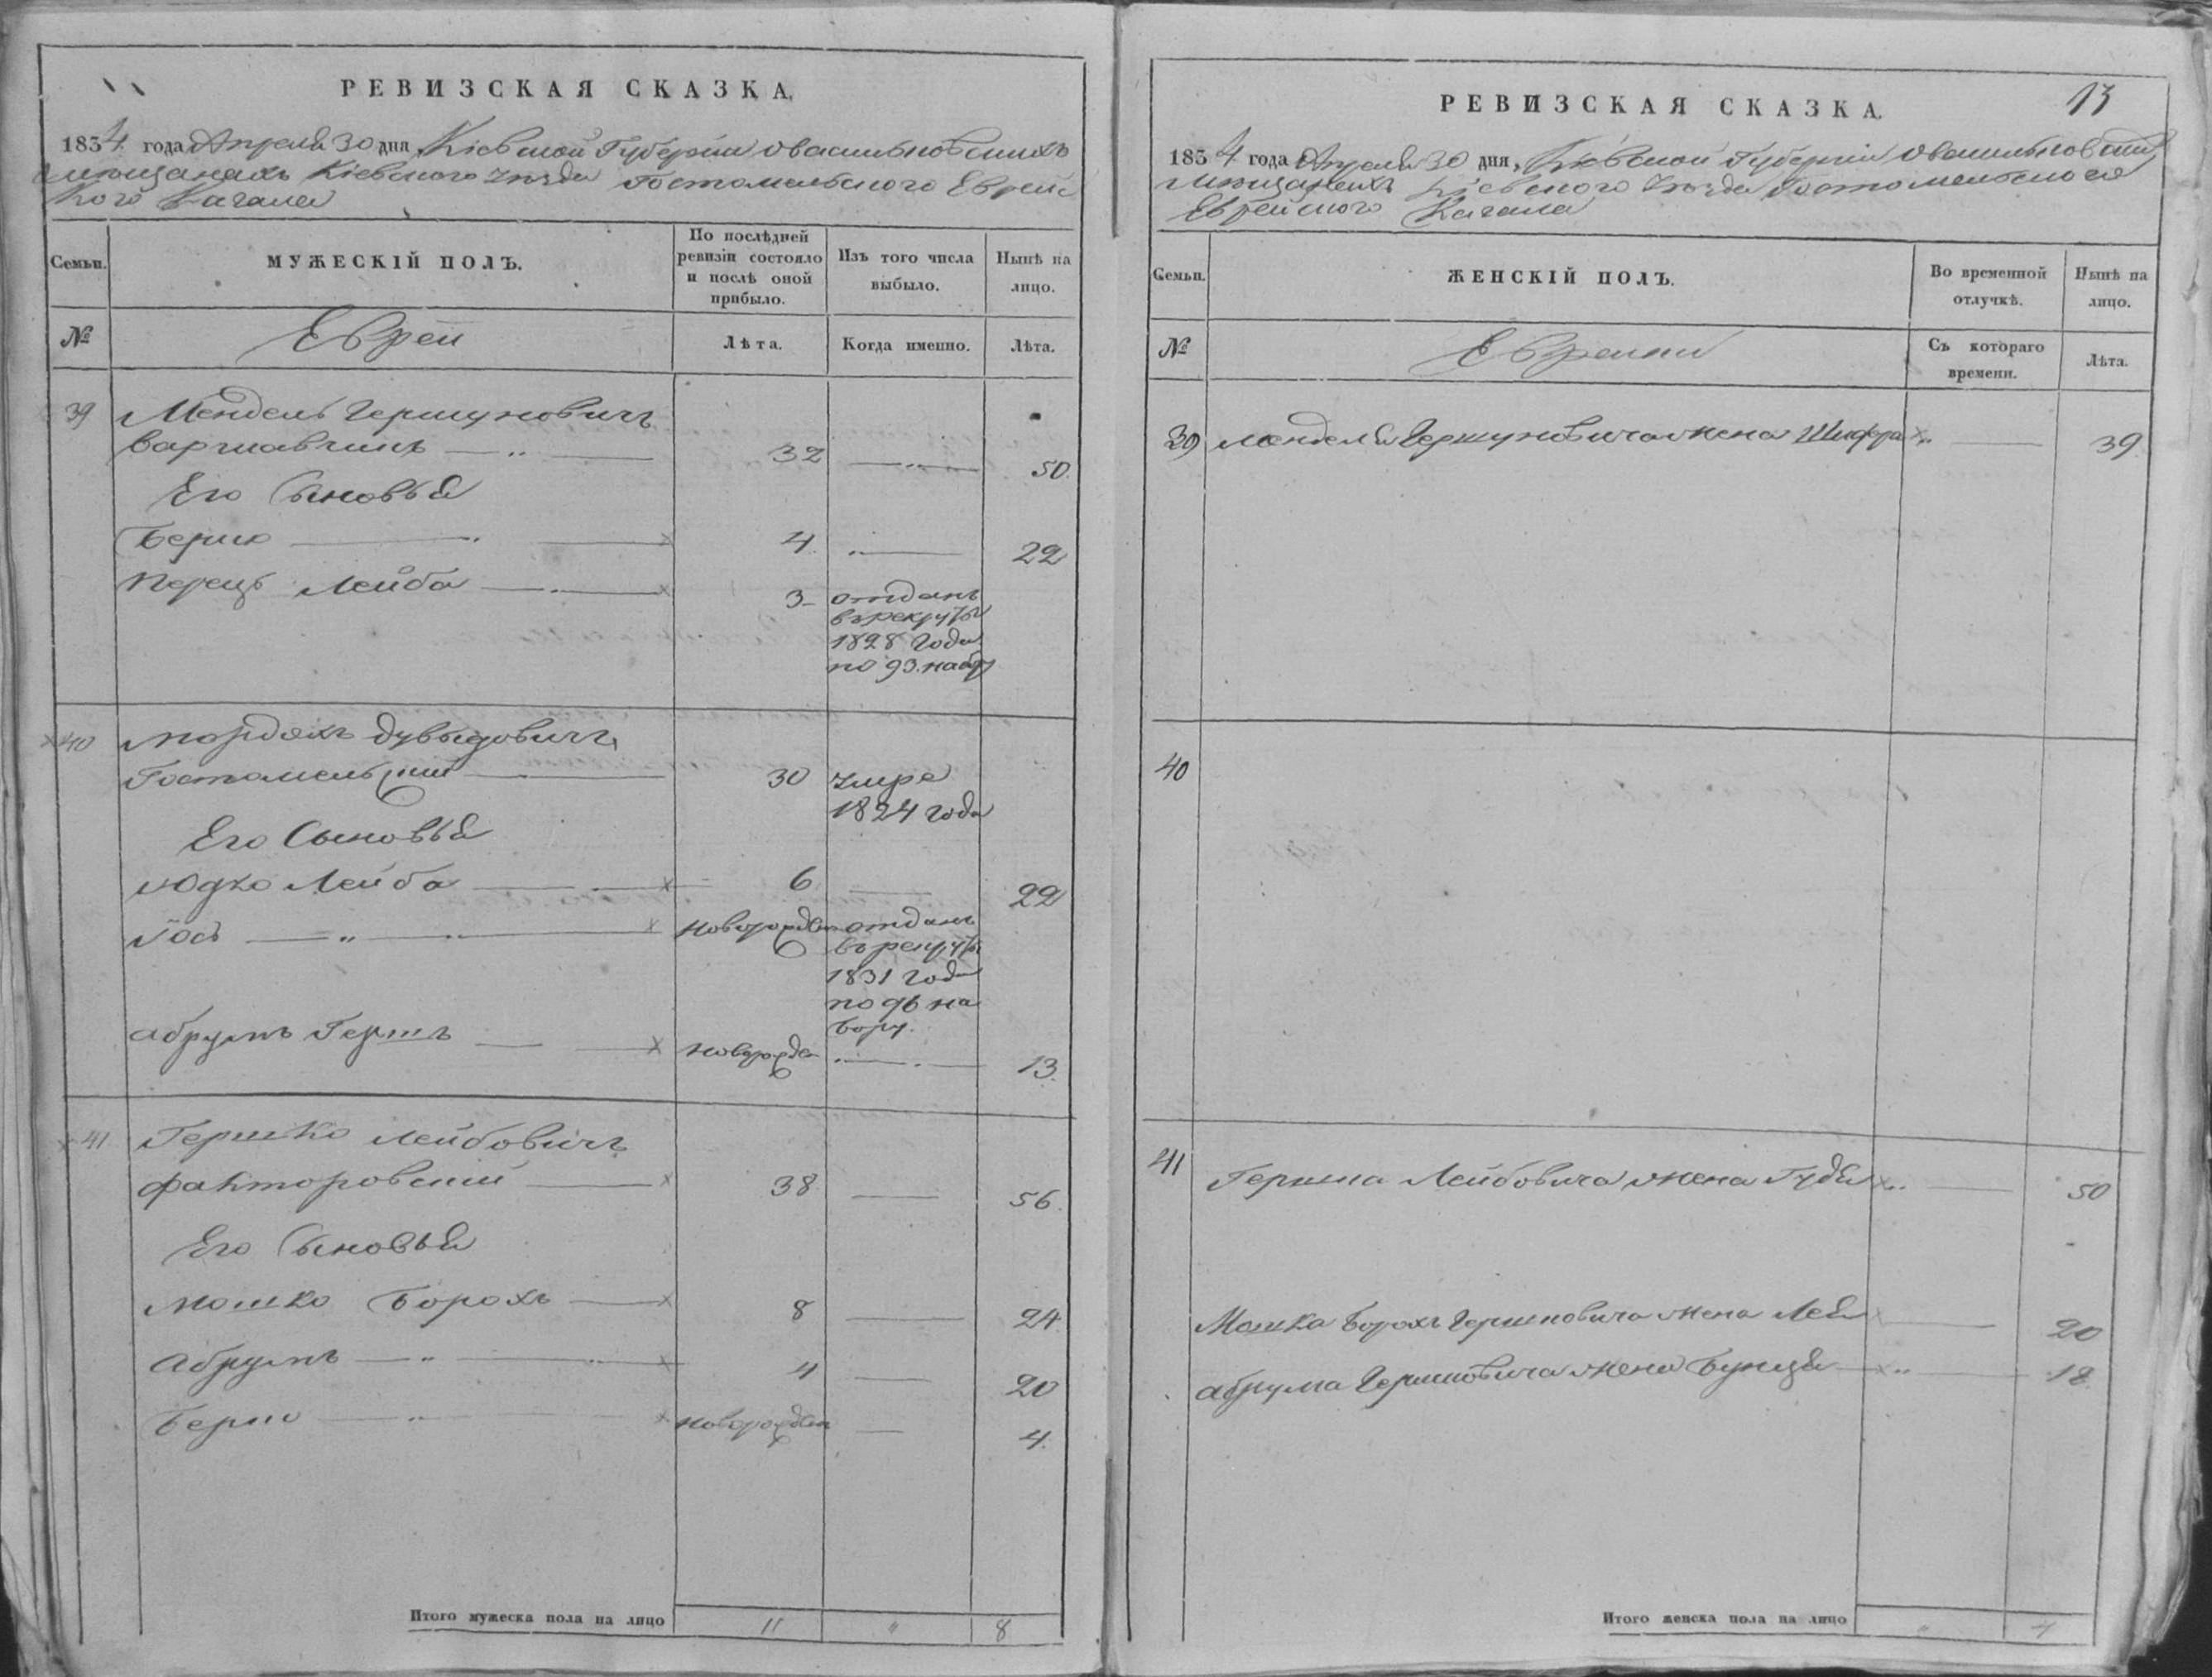 РЕВИЗСКАЯ СКАЗКА.
1834 года Апреля 30 дня Кіевской Губерніи о васильковскихъ
мещанахъ Кіевского уезда Гостомельского Еврейс
кого Кагала
Семьи.
МУЖЕСКІЙ ПОЛЪ.
По послѣдней ревизіи состояло и послѣ оной прибыло.
Изъ того числа выбыло.
Нынѣ на лицо.
№
Евреи
Лѣта.
Когда именно.
Лѣта.
39 Мендель Гершуновичъ
Варшавчикъ 32 50.
Его Сыновья
Берко 4. 22
Перецъ Лейба 3 отданъ
въ рекруты
1828 года
по 93. набору
40 Мордохъ Дувыдовичъ
Гостомельский 30 умре
1824 года
Его Сыновья
Юдко Лейба 6 22
Іось новорожден отданъ
въ рекруты
1831 года
по 96 на
бору.
Абрумъ Гершъ новорожден 13.
41 Гершко Лейбовичъ
Факторовский 38 56.
Его Сыновья
Мошко Борохъ 8 24.
Абрумъ 4 20
Берко новорожден 4.
Итого мужеска пола на лицо 11 " 8
РЕВИЗСКАЯ СКАЗКА.
13
1834 года Апреля 30 дня, Кіевской Губерніи о васильковскихъ
мещанахъ Кіевского уезда Гостомельского
Еврейского Кагала
Семьи.
ЖЕНСКІЙ ПОЛЪ.
Во временной отлучкѣ.
Нынѣ на лицо.
№
Еврейки
Съ котораго времени.
Лѣта.
39 Менделя Гершуновича жена Шифра 39
40
41 Гершка Лейбовича жена Гудя 50
Мошка Борохъ Гершковича жена Лея 20
Абрума Гершковича жена Бунця 18.
Итого женска пола на лицо " 4